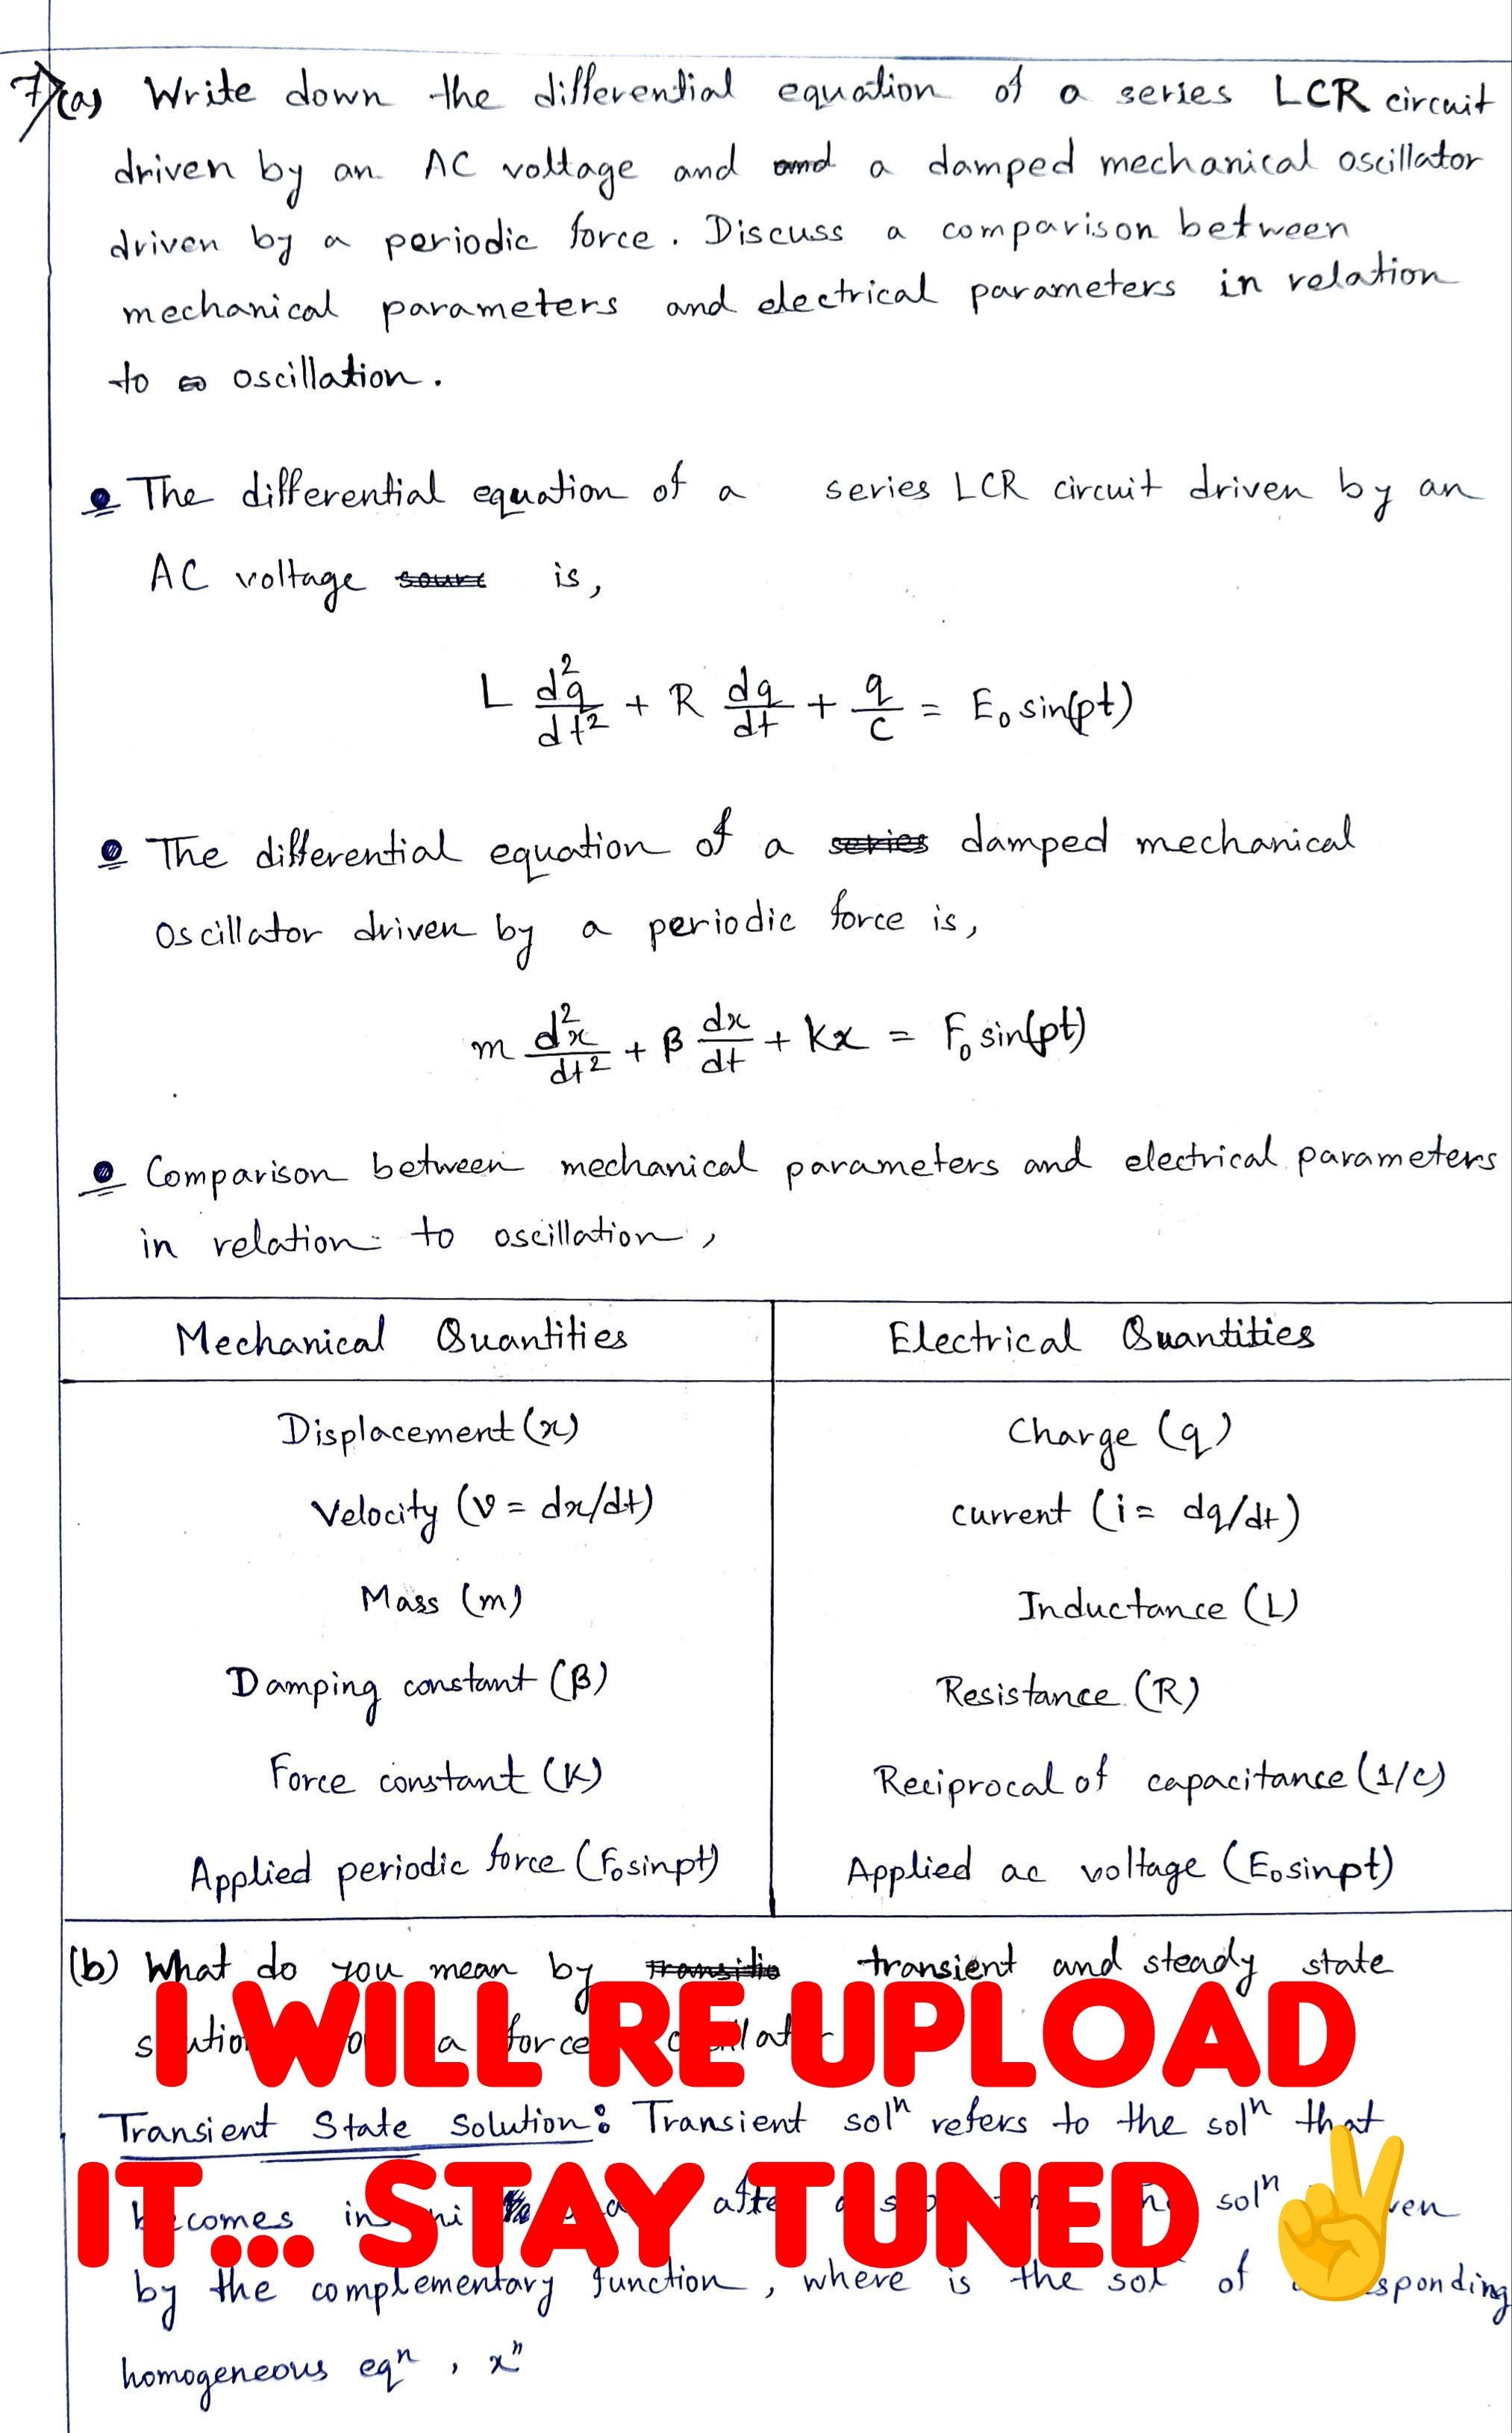 7)(a) Write down the differential equation of a series LCR circuit
driven by an AC voltage and and a damped mechanical oscillator
driven by a periodic force. Discuss a comparison between
mechanical parameters and electrical parameters in relation
to oscillation.
The differential equation of a series LCR circuit driven by an
AC voltage is,
L d²q/dt² + R dq/dt + q/c = E₀ sin(pt)
The differential equation of a series damped mechanical
Oscillator driven by a periodic force is,
m d²x/dt² + β dx/dt + Kx = F₀ sin(pt)
Comparison between mechanical parameters and electrical parameters
in relation to oscillation,
Mechanical Quantities Electrical Quantities
Displacement (x) Charge (q)
Velocity (v = dx/dt) current (i = dq/dt)
Mass (m) Inductance (L)
Damping constant (β) Resistance (R)
Force constant (K) Reciprocal of capacitance (1/c)
Applied periodic force (F₀sinpt) Applied ac voltage (E₀sinpt)
(b) What do you mean by transient and steady state
a force
I WILL RE UPLOAD
Transient State Solution: Transient solⁿ refers to the solⁿ that
IT... STAY TUNED ✌
solⁿ
by the complementary function, where is the sol of
homogeneous eqⁿ, x"